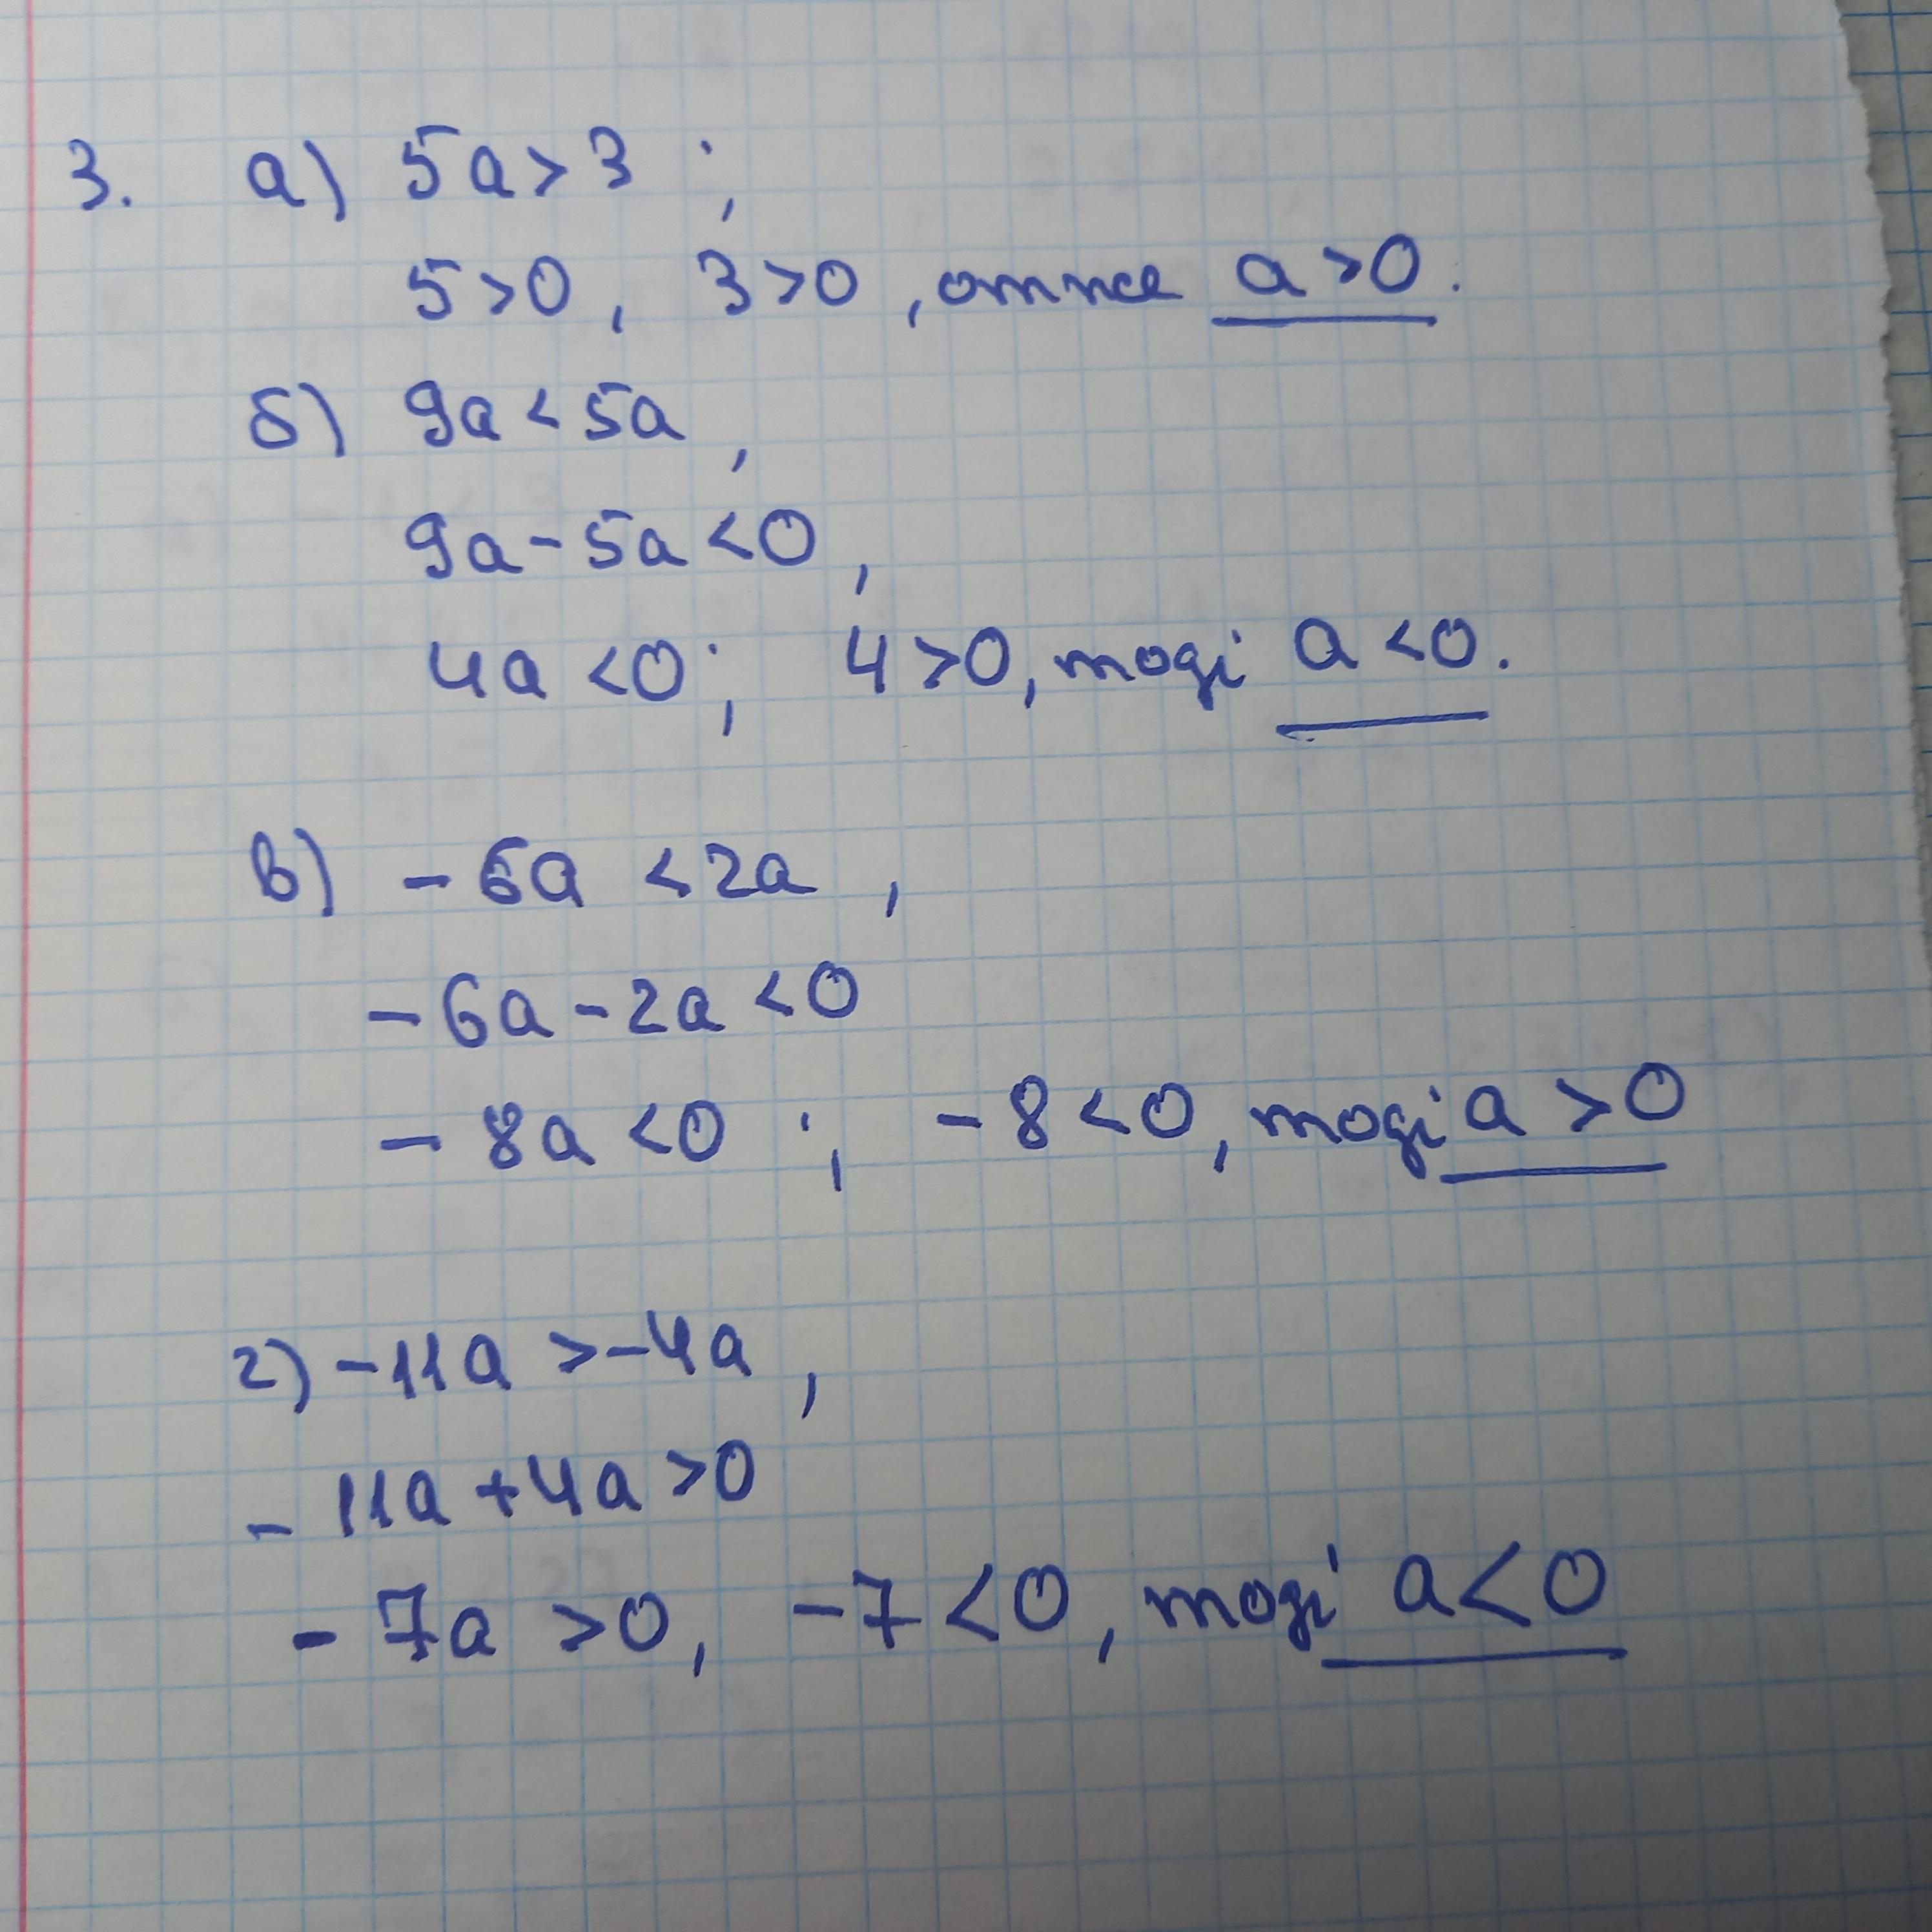 3. а) 5a > 3 ;
5 > 0, 3 > 0, отже a > 0.
б) 9a < 5a,
9a - 5a < 0,
4a < 0; 4 > 0, тоді a < 0.
в) - 6a < 2a,
- 6a - 2a < 0
- 8a < 0 ; - 8 < 0, тоді a > 0
г) - 11a > - 4a,
- 11a + 4a > 0
- 7a > 0, - 7 < 0, тоді a < 0